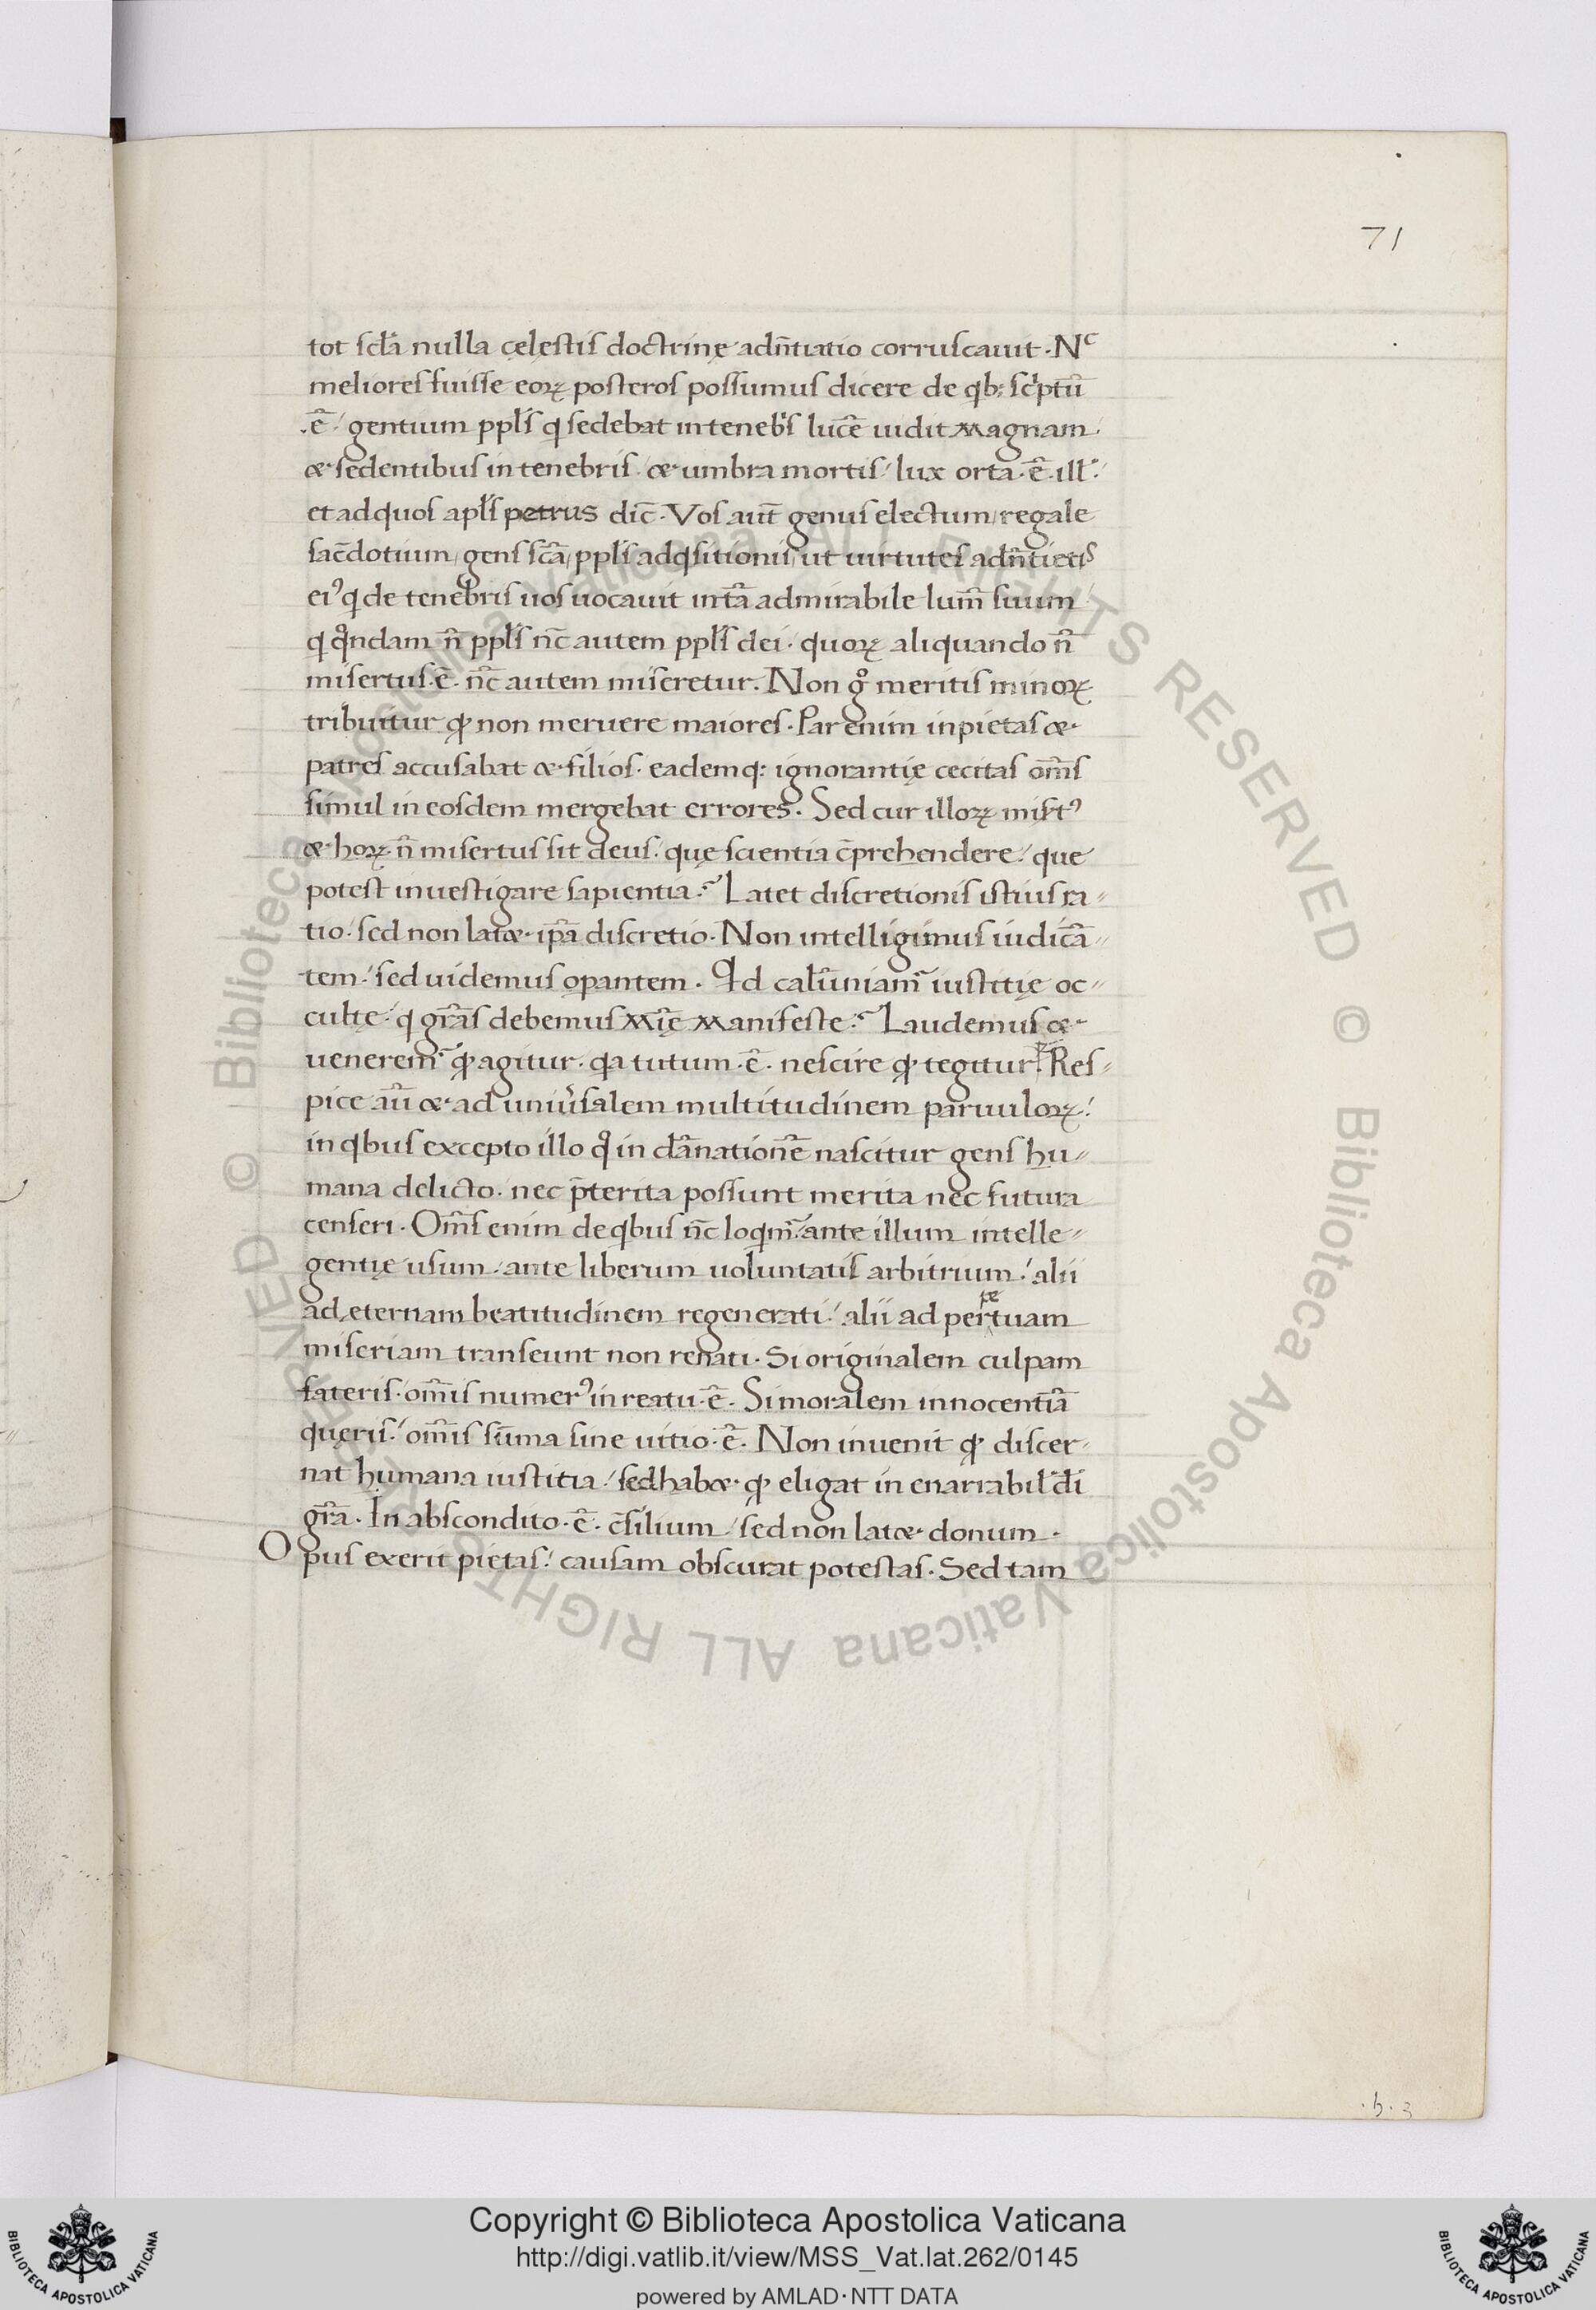 71
tot scl̄a nulla cęlestis doctrinę adn̄tiatio corruscauit · Nᶜ
meliores fuisse eoꝝ posteros possumus dicere de qb; scͥptū
· ē · gentium ppl̄s q sedebat in tenebͥs lucē uidit magnam ·
& sedentibus in tenebris · & umbra mortis / lux orta · ē · ill ·
et ad quos apl̄s petrus dic̄ · Vos aut̄ genus electum / regale
sac̄dotium / gens sc̄a / ppl̄s adqsitionis / ut uirtutes adn̄tietis
eiꝰ q de tenebris uos uocauit int̄a admirabile lum̄ suum
q qͦndam n̄ ppl̄s nc̄ autem ppl̄s dei · quoꝝ aliquando n̄
misertus · ē · nc̄ autem miseretur . Non gͦ meritis minoꝝ
tribuitur qͩ non meruere maiores · Par enim inpietas &
patres accusabat & filios · eademq; ignorantię cecitas om̄s
simul in eosdem mergebat errores · Sed cur illoꝝ misertꝰ
& hoꝝ n̄ misertus sit deus · quę scientia c̄prehendere / que
potest inuestigare sapientia ? Latet discretionis istius ra-
tio / sed non lat& ip̄a discretio · Non intelligimus iudicā-
tem / sed uidemus opantem . Qd calūniam̃ iustitię oc-
cultę / q gr̄as debemus mīę manifestę ? Laudemus &
uenerem̃ qͩ agitur · qa tutum · ē · nescire qͩ tegitur . Res-
pice aū & ad uniu̓salem multitudinem paruuloꝝ /
in qbus excepto illo qͦ in dānationē nascitur gens hu-
mana delicto · nec p̄terita possunt merita nec futura
censeri · Om̄s enim de qbus nc̄ loqm̃ / ante illum intelle-
gentię usum / ante liberum uoluntatis arbitrium / alii
ad ęternam beatitudinem regenerati / alii ad perpetuam
miseriam transeunt non renati · Si originalem culpam
fateris · om̄is numerꝰ in reatu · ē · Si moralem innocentiā
quęris / om̄is sūma sine uitio · ē · Non inuenit qͩ discer-
nat humana iustitia / sed hab& · qͩ eligat in enarrabil dī
gr̄a · In abscondito · ē · c̄silium / sed non lat& · donum ·
Opus exerit pietas / causam obscurat potestas · Sed tam
. h . 3
Copyright © Biblioteca Apostolica Vaticana
http://digi.vatlib.it/view/MSS_Vat.lat.262/0145
powered by AMLAD·NTT DATA
BIBLIOTECA APOSTOLICA VATICANA
BIBLIOTECA APOSTOLICA VATICANA